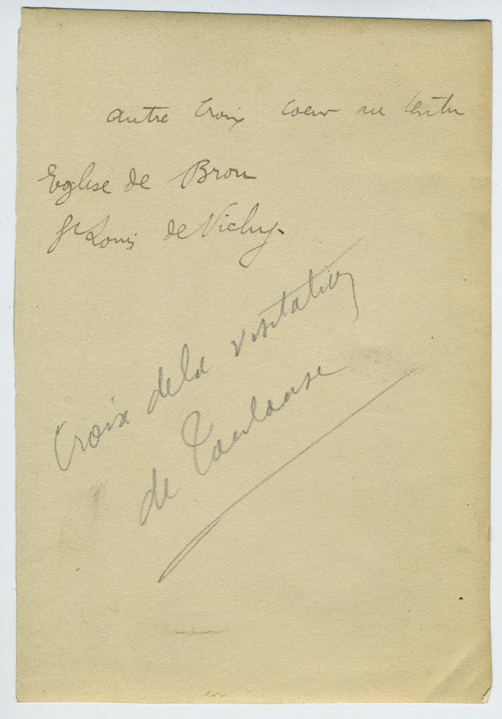 autre Croix coeur au centre
Eglise de Brou
St Louis de Vichy.
Croix de la visitation
de Toulouse